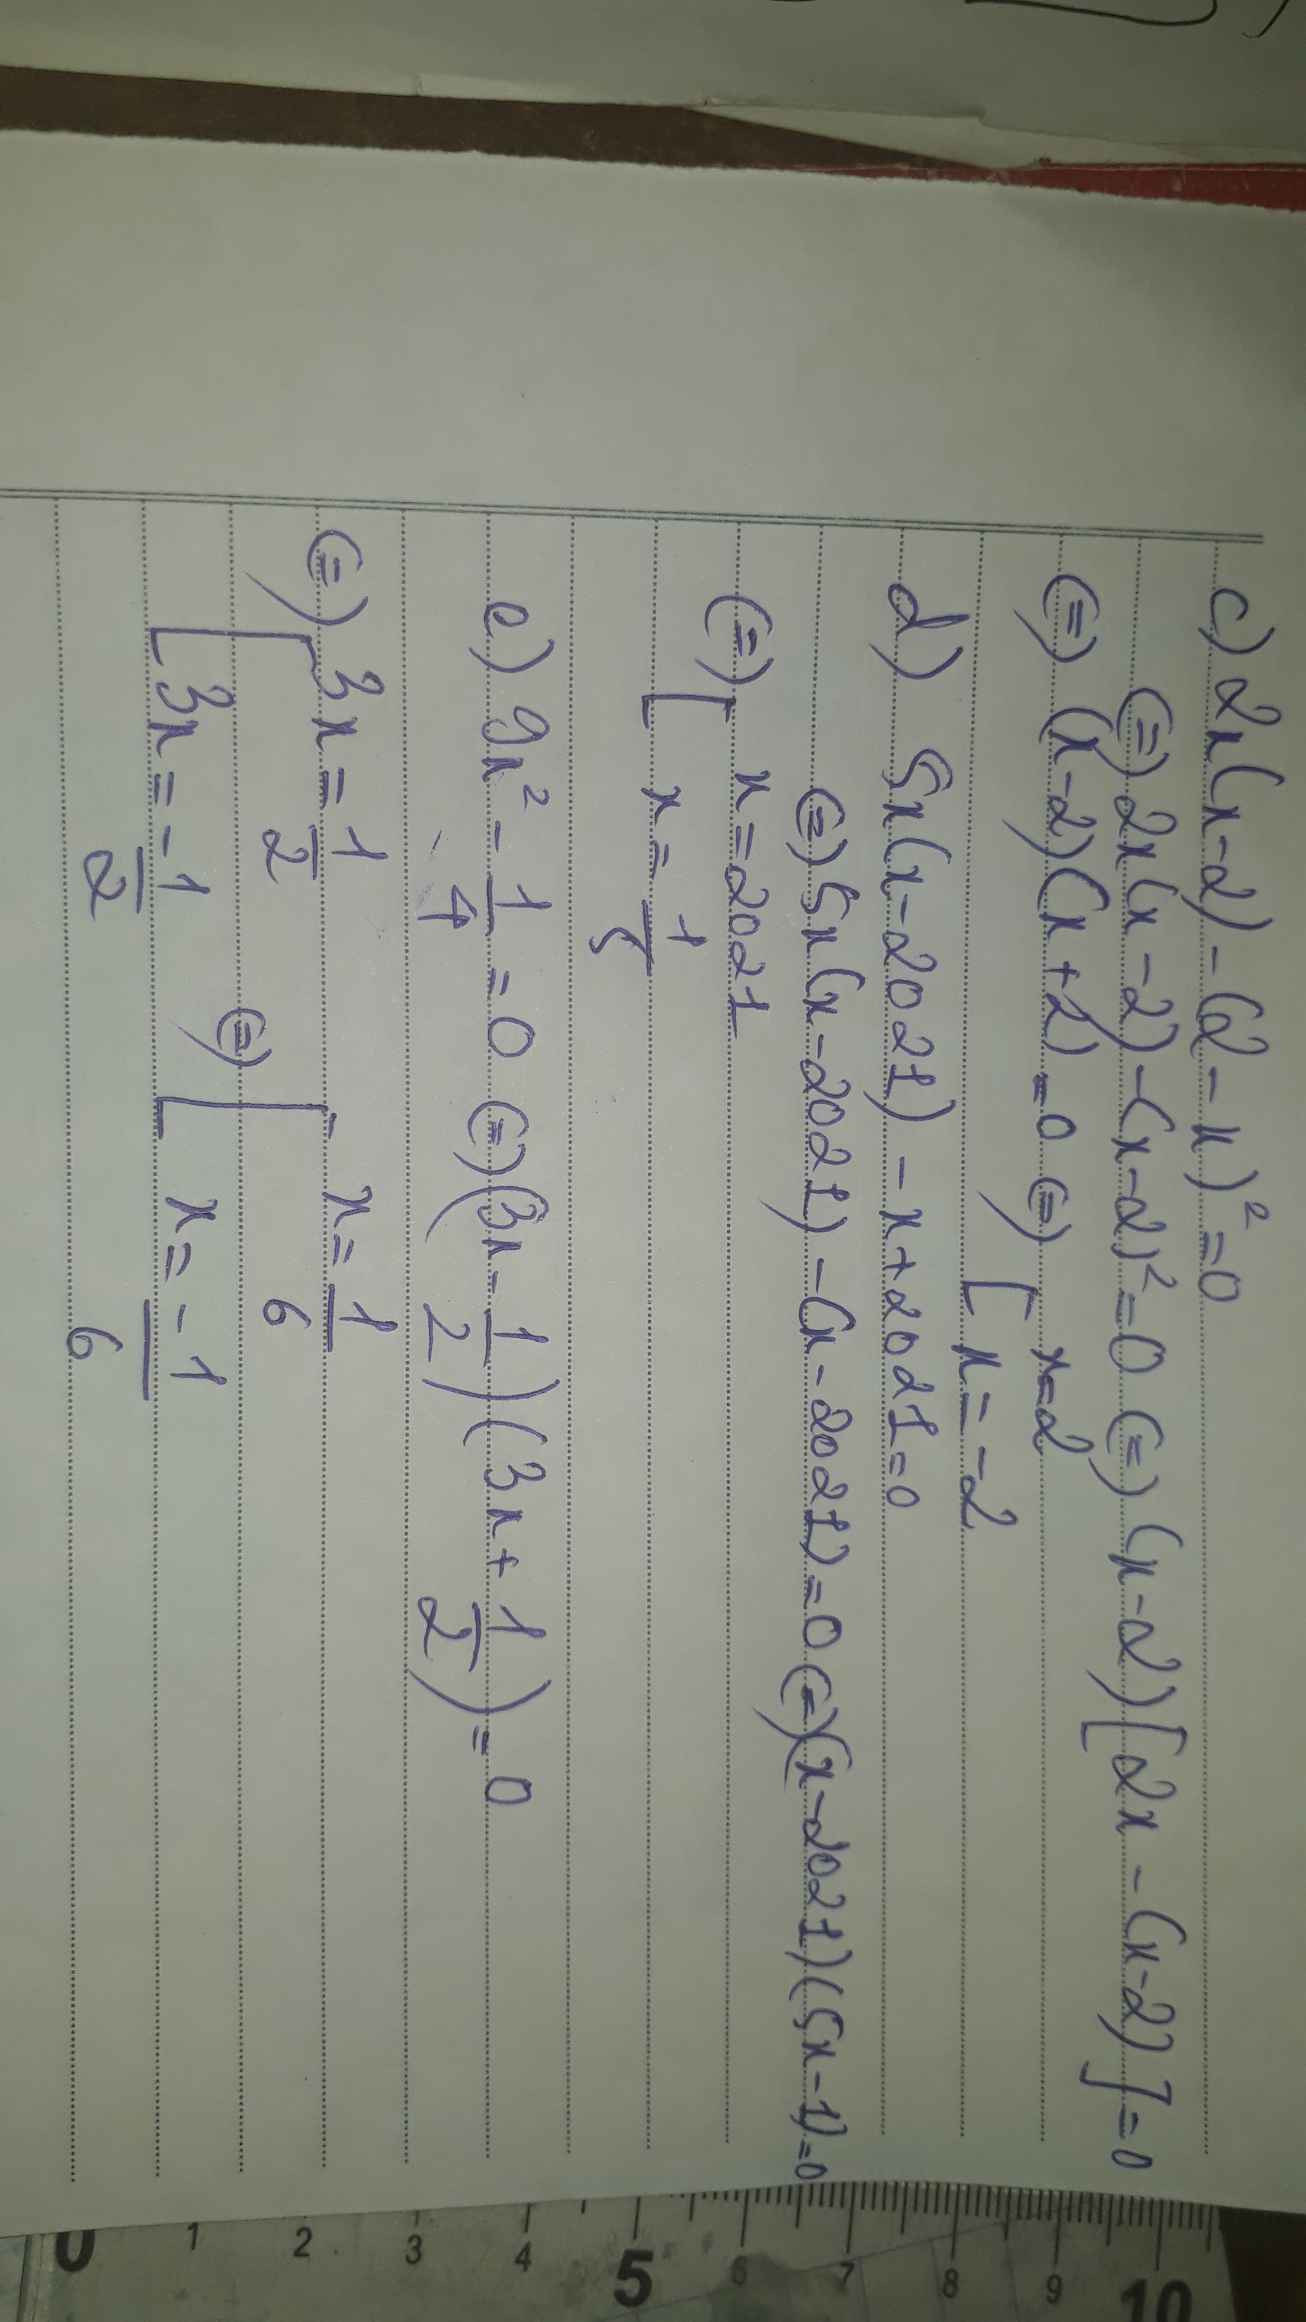 c) 2x(x-2)-(2-x)²=0
(=) 2x(x-2)-(x-2)²=0 (=) (x-2)[2x-(x-2)]=0
(=) (x-2)(x+2)=0 (=) [ x=2
[ x=-2
d) 5x(x-2021)-x+2021=0
(=) 5x(x-2021)-(x-2021)=0 (=) (x-2021)(5x-1)=0
(=) [ x=2021
[ x=1/5
e) 9x²-1/4=0 (=) (3x-1/2)(3x+1/2)=0
(=) [ 3x=1/2 (=) [ x=1/6
[ 3x=-1/2 [ x=-1/6
0 1 2 3 4 5 6 7 8 9 10